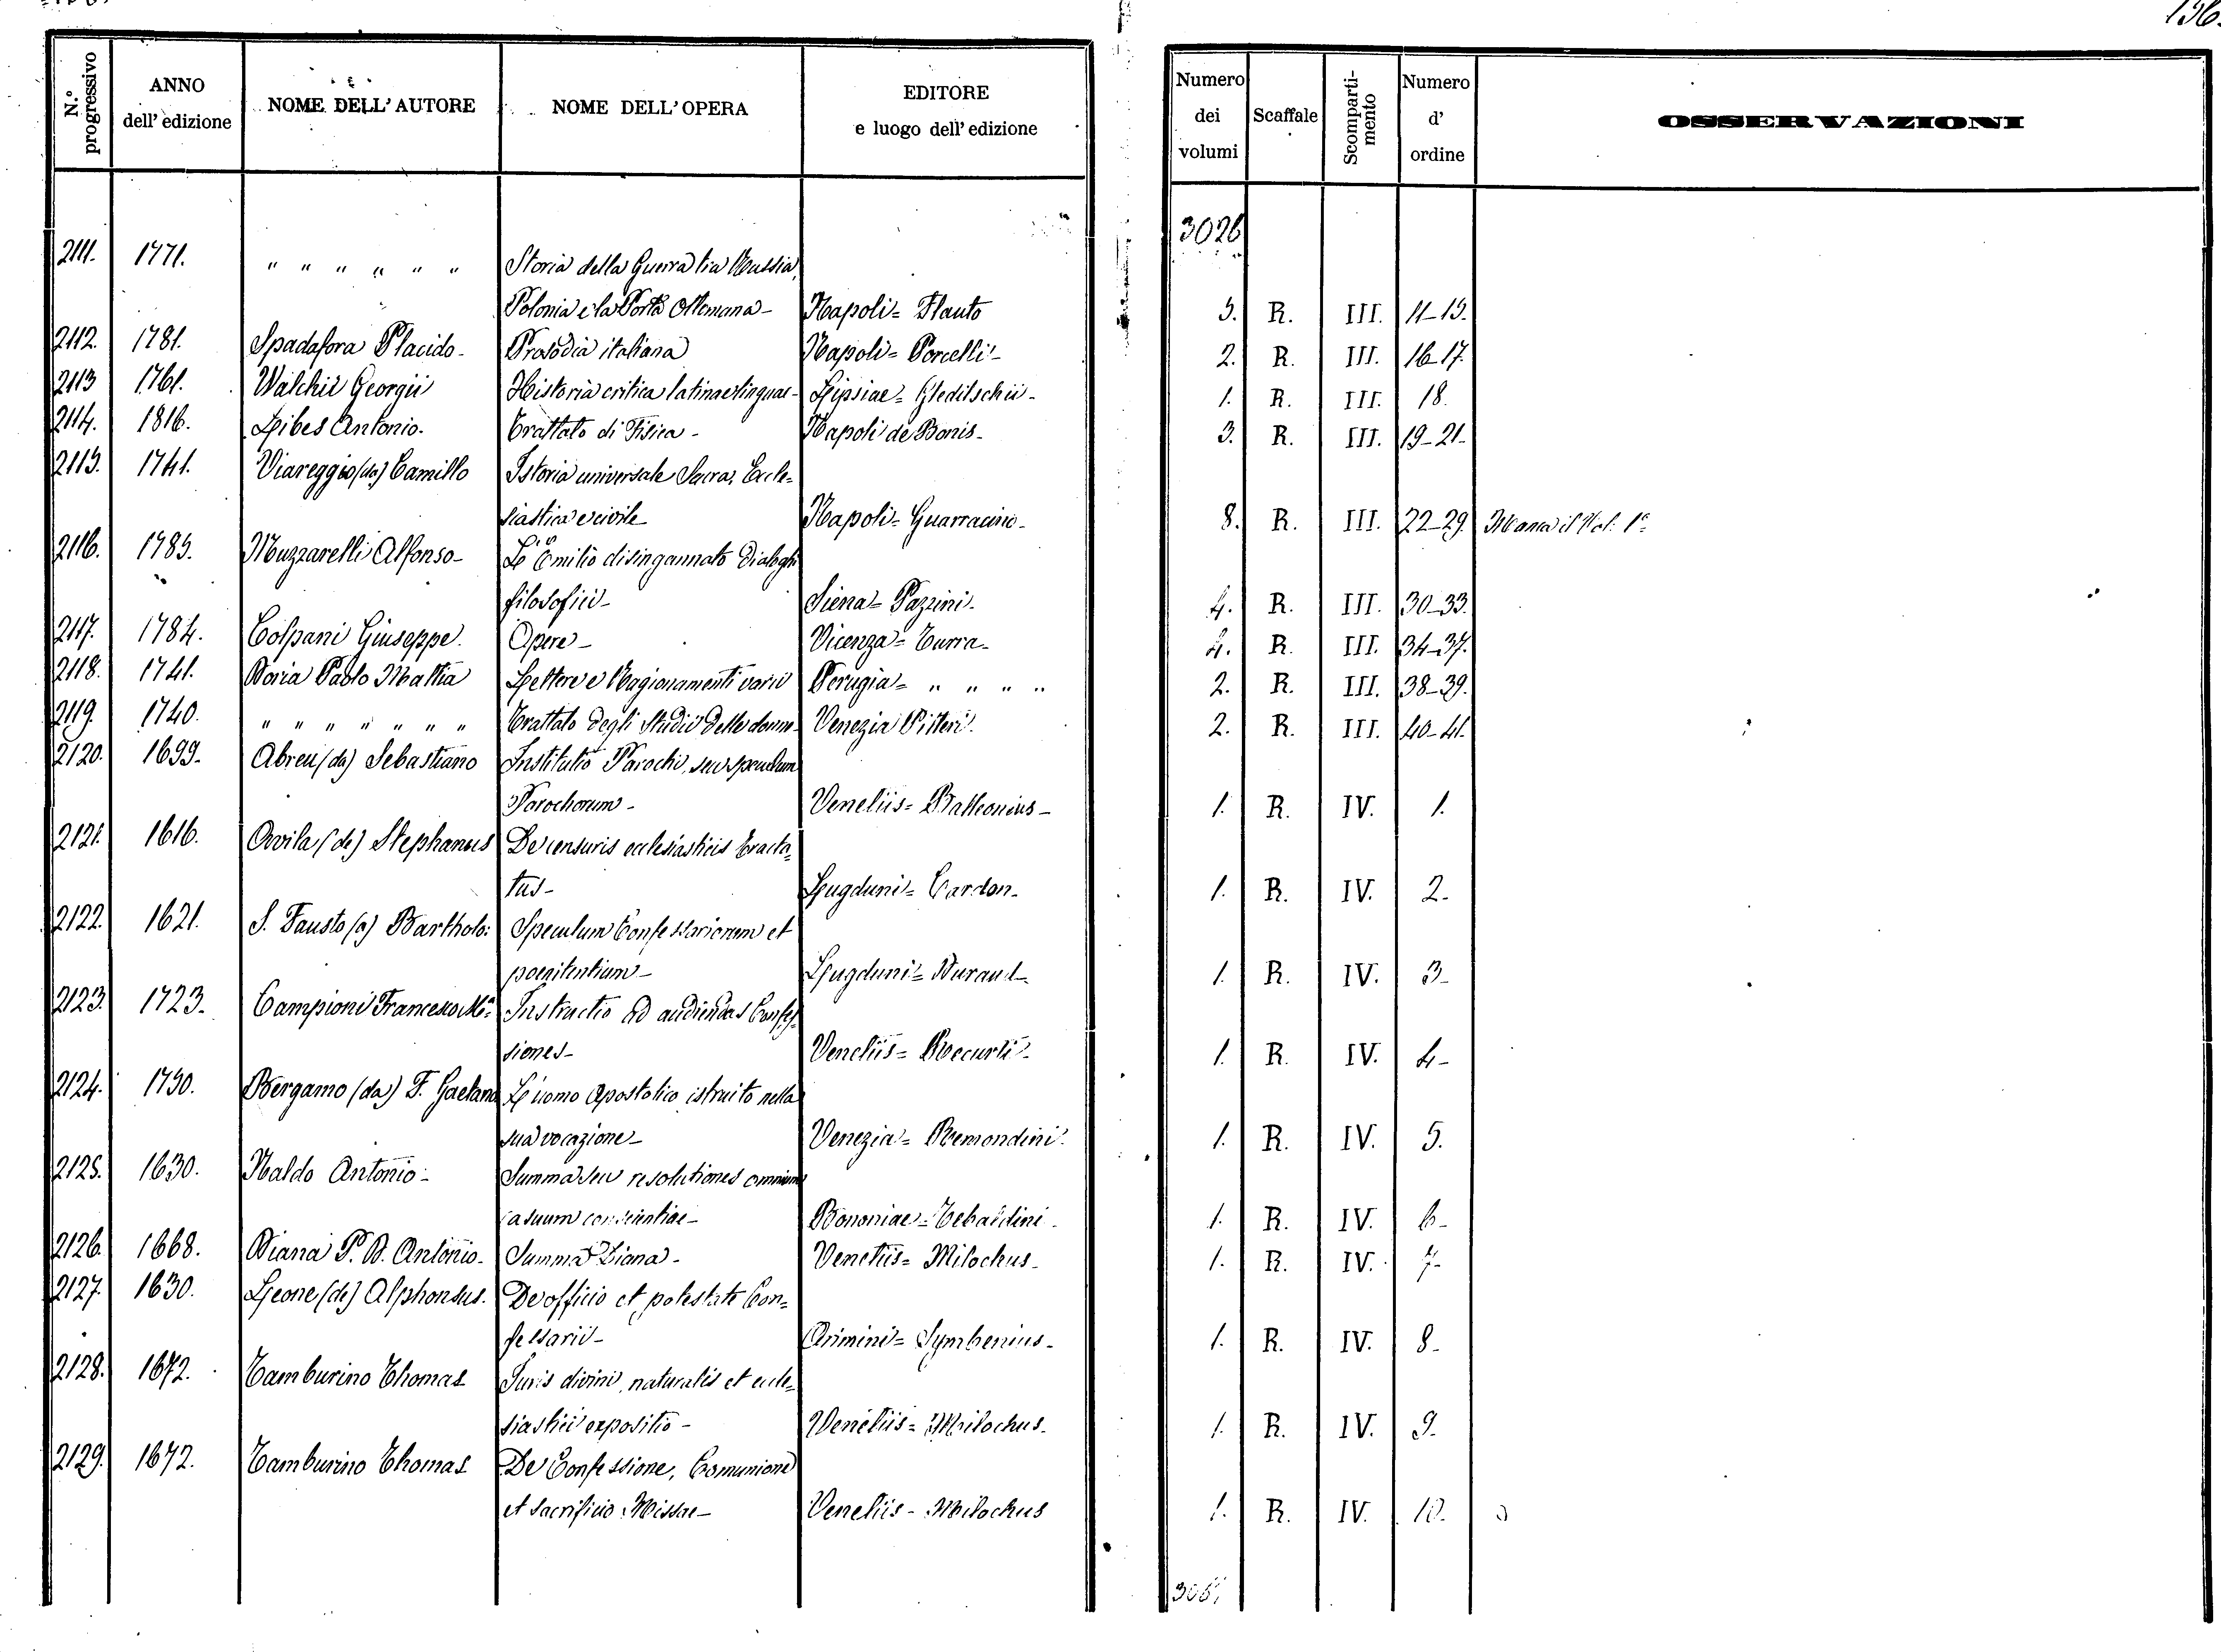 156.
N.° progressivo | ANNO dell' edizione | NOME DELL' AUTORE | NOME DELL' OPERA | EDITORE e luogo dell' edizione | Numero dei volumi | Scaffale | Scomparti-mento | Numero d' ordine | OSSERVAZIONI
3026
2111. 1771. " " " " " " Storia della Guerra tra Russia,
Polonia e la Porta Ottomana - Napoli = Flauto 5. R. III. 11-15.
2112. 1781. Spadafora Placido - Prosodia italiana Napoli = Porcelli - 2. R. III. 16-17.
2113 1761. Walchii Georgii Historia critica latinae linguae - Lipsiae = Gleditschii - 1. R. III. 18.
2114. 1816. Libes Antonio. Trattato di Fisica - Napoli de Bonis - 3. R. III. 19-21-
2115. 1741. Viareggio (da) Camillo Istoria universale Sacra, Eccle=
siastica e civile Napoli = Guarracino - 8. R. III. 22-29. Manca il Vol. 1°
2116. 1785. Muzzarelli Alfonso - L' Emilio disingannato Dialoghi
filosofici - Siena = Pazzini - 4. R. III. 30-33.
2117. 1784. Colpani Giuseppe. Opere - Vicenza = Turra - 4. R. III. 34-37.
2118. 1741. Doria Paolo Mattia Lettere e Ragionamenti varii Perugia = " " " " 2. R. III. 38-39.
2119. 1740. " " " " " " " Trattato degli Studii delle donne - Venezia Pitteri. 2. R. III. 40-41.
2120. 1699. Abreu (da) Sebastiano Institutio Parochi, seu speculum
Parochorum - Venetiis = Balleonius - 1. R. IV. 1.
2121. 1616. Avila (de) Stephanus De censuris ecclesiasticis Tracta=
tus - Lugduni = Cardon - 1. R. IV. 2.
2122. 1621. S. Fausto (a) Bartholo: Speculum Confessariorum et
poenitentium - Lugduni = Durand - 1. R. IV. 3-
2123. 1723. Campioni Francesco Ma: Instructio ad audiendas Confes=
siones - Venetiis = Recurti - 1. R. IV. 4-
2124. 1750. Bergamo (da) F. Gaetano L' uomo Apostolico istruito nella
sua vocazione - Venezia = Remondini. 1. R. IV. 5.
2125. 1630. Naldo Antonio - Summa seu resolutiones omnium
casuum conscientiae - Bononiae = Tebaldini - 1. R. IV. 6-
2126. 1668. Diana P. D. Antonio - Summa Diana - Venetiis = Milochus - 1. R. IV. 7-
2127. 1630. Leone (de) Alphonsus. De officio et potestate Con=
fessarii - Arimini = Symbenius - 1. R. IV. 8-
2128. 1672. Tamburino Thomas Juris divini, naturalis et eccle=
siastici expositio - Venetiis = Milochus - 1. R. IV. 9-
2129. 1672. Tamburino Thomas De Confessione, Comunione
et sacrificio Missae - Venetiis - Milochus 1. R. IV. 10.